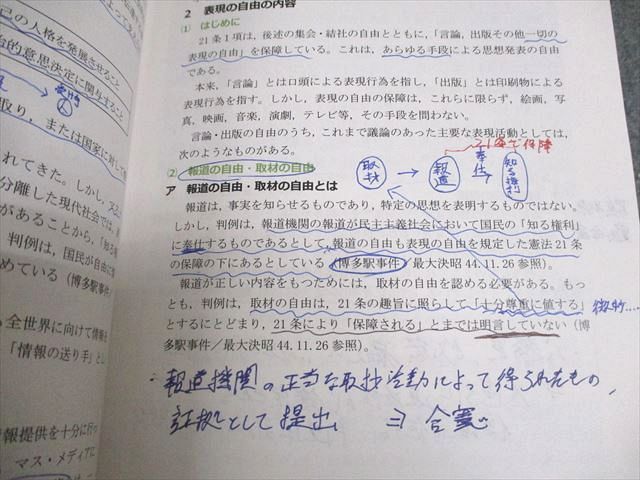 己の人格を発展させること
治的意思決定に関与すること
取り，または国家に対して
れてきた。しかし，
分離した現代社会では，
があることから，「知る
判例は，国民が自由に
めている（博多駅事件
全世界に向けて情報を
「情報の送り手」とし
報提供を十分に行
マス・メディアに
2 表現の自由の内容
(1) はじめに
21条1項は，後述の集会・結社の自由とともに，「言論，出版その他一切の
表現の自由」を保障している。これは，あらゆる手段による思想発表の自由
である。
本来，「言論」とは口頭による表現行為を指し，「出版」とは印刷物による
表現行為を指す。しかし，表現の自由の保障は，これらに限らず，絵画，写
真，映画，音楽，演劇，テレビ等，その手段を問わない。
言論・出版の自由のうち，これまで議論のあった主要な表現活動としては，
次のようなものがある。
21条で保障
取材 → 報道 奉仕 → 知る権利
(2) 報道の自由・取材の自由
ア 報道の自由・取材の自由とは
報道は，事実を知らせるものであり，特定の思想を表明するものではない。
しかし，判例は，報道機関の報道が民主主義社会において国民の「知る権利」
に奉仕するものであるとして，報道の自由も表現の自由を規定した憲法21条
の保障の下にあるとしている（博多駅事件／最大決昭44.11.26参照）。
報道が正しい内容をもつためには，取材の自由を認める必要がある。もっ
とも，判例は，取材の自由は，21条の趣旨に照らして「十分尊重に値する」
微妙……
とするにとどまり，21条により「保障される」とまでは明言していない（博
多駅事件／最大決昭44.11.26参照）。
報道機関の正当な取材活動によって得られたもの，
証拠として提出 ⇒ 合憲